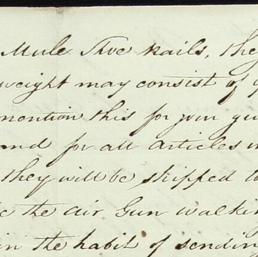 Mule Shoe Nails, the
weight may consist of
mention this for your gu
and for all articles
they will be shipped to
the air Gun walki
in the habit of sending